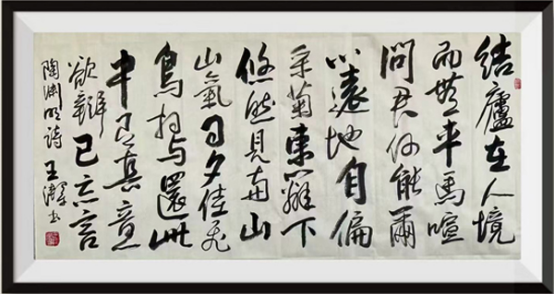 結廬在人境
而無車馬喧
問君何能爾
心遠地自偏
采菊東籬下
悠然見南山
山氣日夕佳飛
鳥相与還此
中有真意
欲辯已忘言
陶渊明诗 王